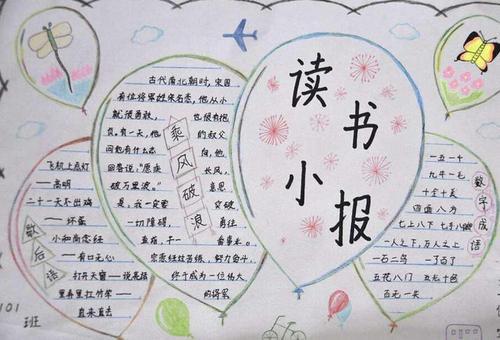 读书
小报
古代南北朝时，宋国
有位将军姓宗名悫，他从小
就很勇敢，也很有抱
负。有一天，他的叔父
问他有什么志向，他
回答说：“愿乘长风，
破万里浪。”意思
是：我一定要突破
一切障碍，勇往
直前，干一番事业。
宗悫经过苦练，努力奋斗，
终于成为一位伟大
的将军
乘风破浪
飞机上点灯
——高明
二十一天不出鸡
——坏蛋
小和尚念经
——有口无心
打开天窗——说亮话
里弄里扛竹竿——
直来直去
歇后语
一五一十
九牛一毛
十全十美
四面八方
七上八下 七手八脚
一人之下，万人之上
一石二鸟 一了百了
五花八门 五光十色
百无一失
数字成语
101
班